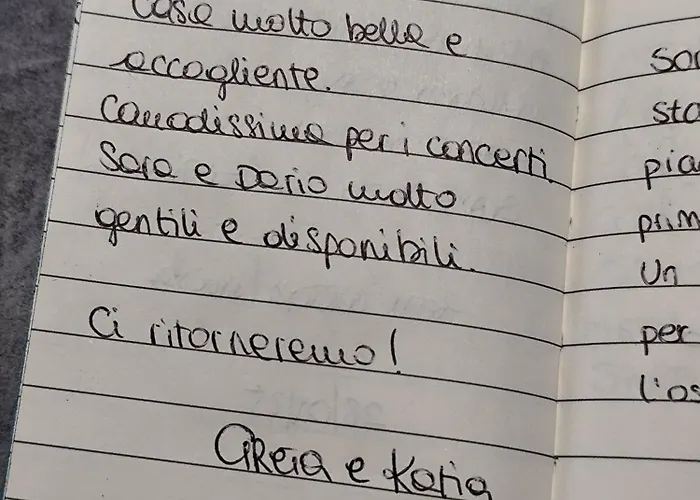 Casa molto bella e
accogliente.
Comodissima per i concerti.
Sara e Dario molto
gentili e disponibili.
Ci ritorneremo!
e Katia
per
Un